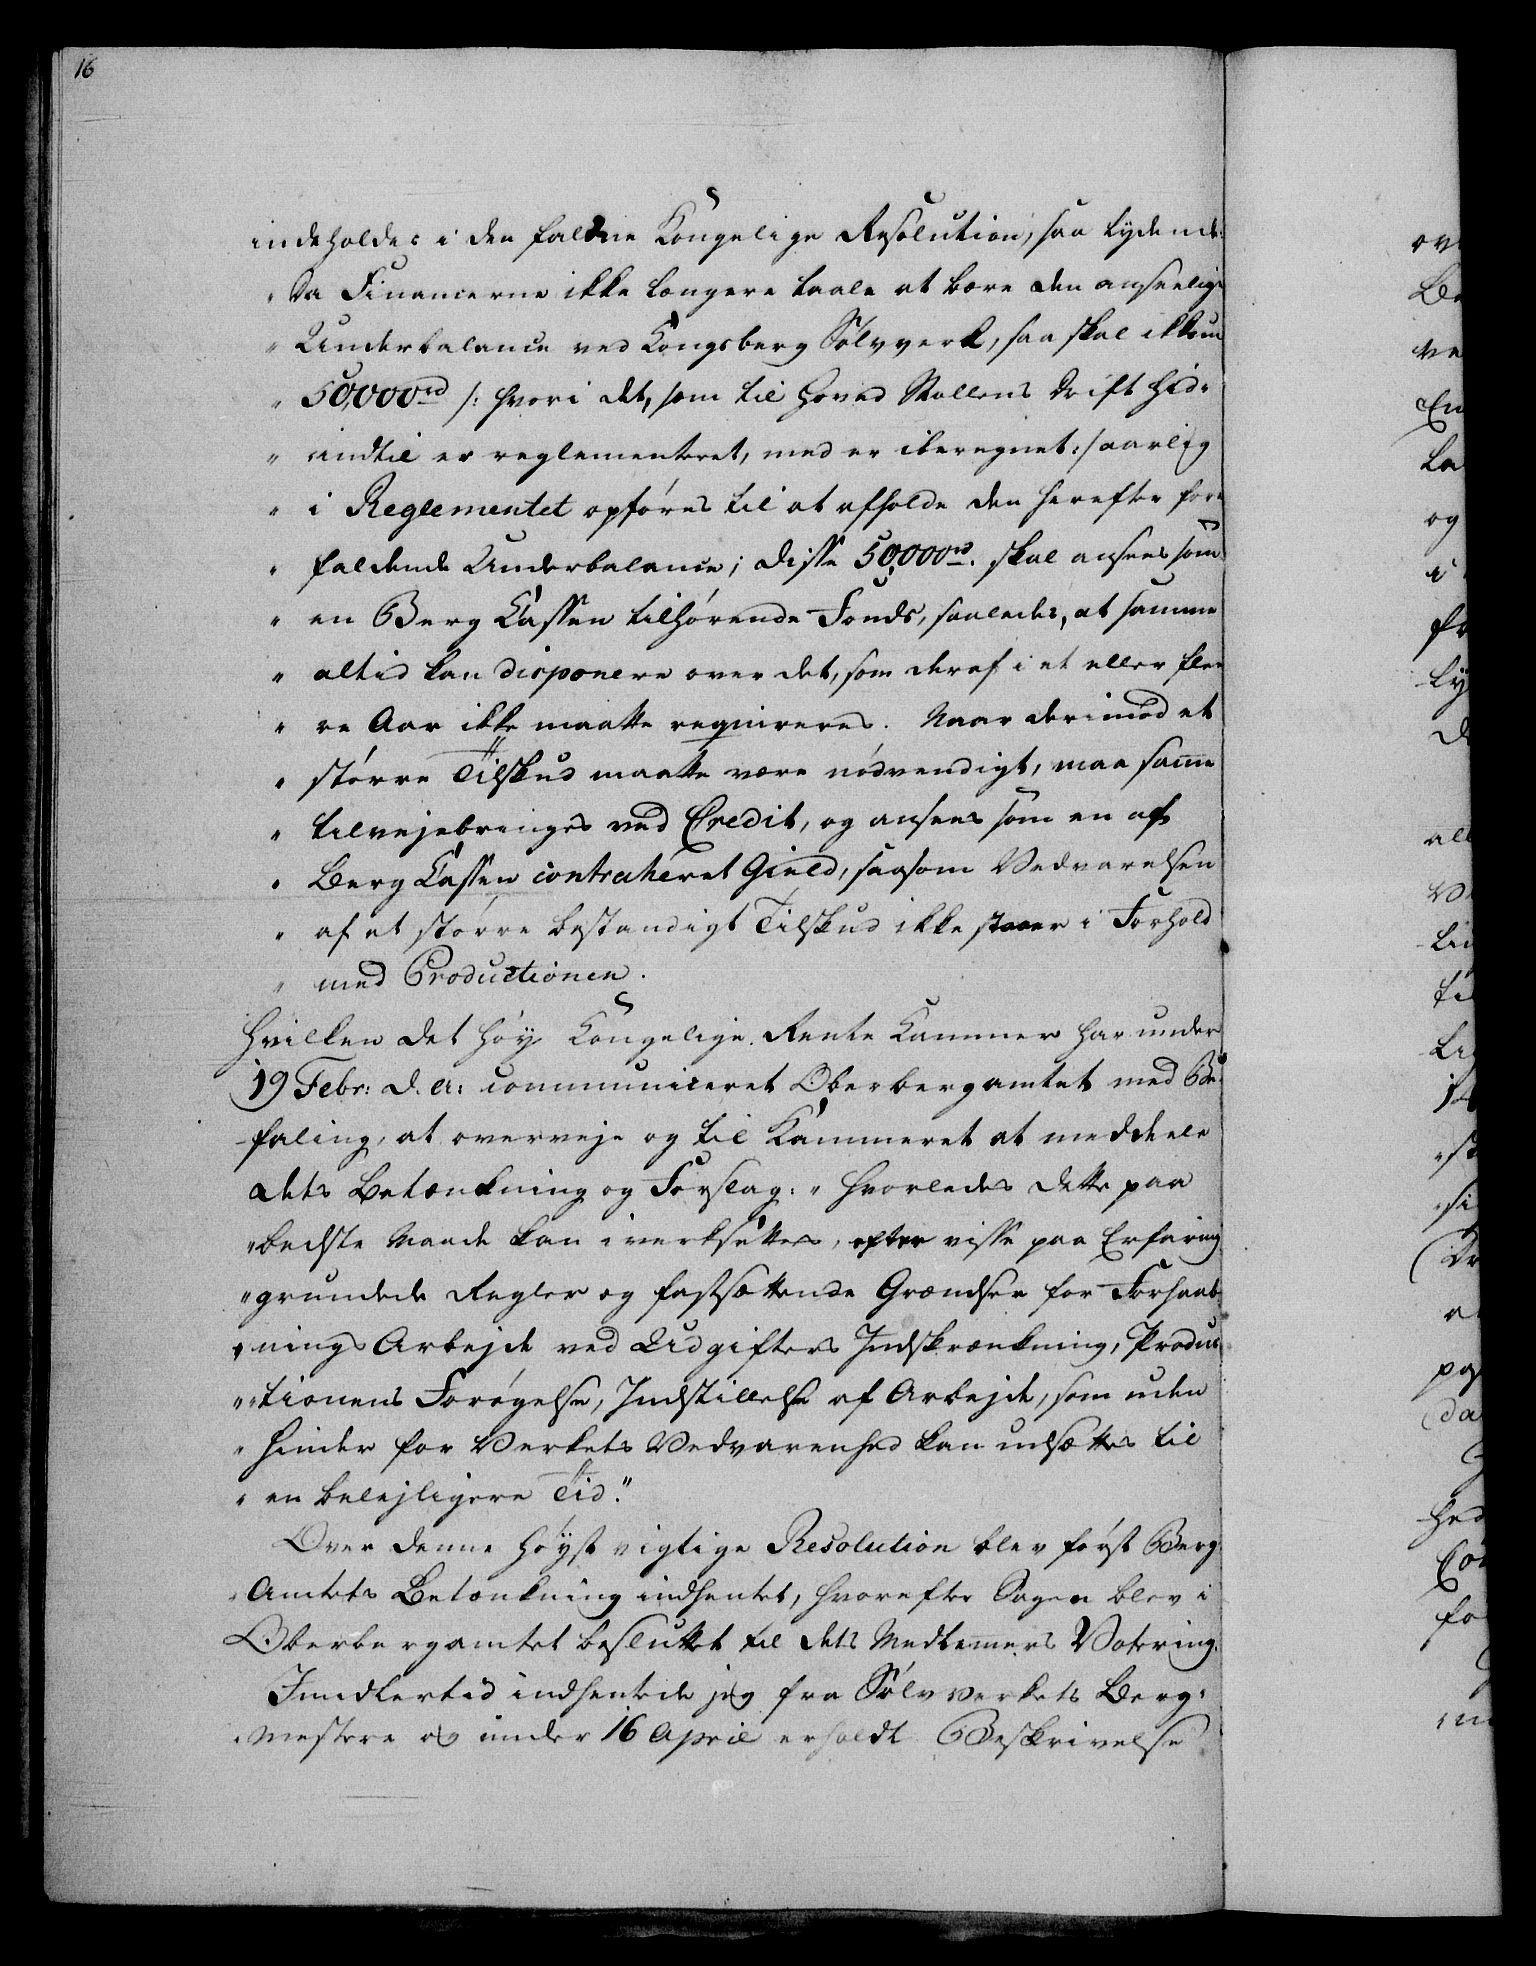 16
indeholdes i den faldne Kongelige Resolution, saa lydende:
" Da Financerne ikke længere taale at bære den anseelige
" Underbalance ved Kongsberg Sølvverk, saa skal ikkun
" 50,000rd /: hvori det, som til Hoved Stollens Drift hid-
" indtil er reglementeret, med er iberegnet :/ aarlig
" i Reglementet opføres til at afholde den herefter fore
" faldende Underbalance; disse 50,000rd. skal ansees som
" en Berg Cassen tilhørende Fonds, saaledes, at samme
" altid kan disponere over det, som deraf i et eller flee
" re Aar ikke maatte reqvireres. Naar derimod et
" større Tilskud maatte være nødvendigt, maa samme
" tilvejebringes ved Credit, og ansees som en af
" Berg Cassen contraheret Gield, saasom Vedvarelsen
" af et større bestandigt Tilskud ikke staaer i Forhold
" med Productionen.
Hvilken det høy Kongelige Rente Kammer har under
19 Febr: d. A: communiceret Oberbergamtet med Be-
faling, at overveje og til Kammeret at meddeele
dets Betænkning og Forslag: " hvorledes dette paa
" bedste Maade kan iverksættes, efter visse paa Erfaring
" grundede Regler og fastsættende Grændser for Forhaab-
" nings Arbejde ved Udgifters Indskrænkning, Produc
" tionens Forøgelse, Indstillelse af Arbejde, som uden
" Hinder for Verkets Vedvarenhed kan udsættes til
" en belejligere Tid."
Over denne høyst vigtige Resolution blev først Berg
Amtets Betænkning indhentet, hvorefter Sagen blev i
Oberbergamtet besluttet til dets Medlemmers Votering.
Imidlertid indhentede jeg fra Sølvverkets Berg-
mestere og under 16 April erholdt Beskrivelse